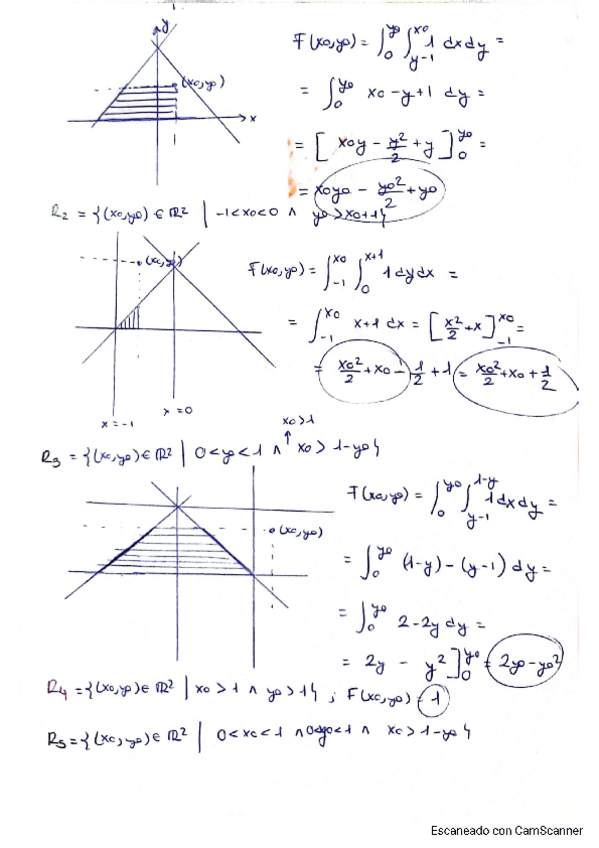 y
(x0,y0)
x
F(x0,y0) = ∫_0^{y0} ∫_{y-1}^{x0} 1 dx dy =
= ∫_0^{y0} x0 - y + 1 dy =
= [ x0y - y²/2 + y ]_0^{y0} =
= x0y0 - y0²/2 + y0
R2 = {(x0,y0) ∈ ℝ² | -1<x0<0 ∧ y0 > x0+1}
(x0,y0)
F(x0,y0) = ∫_{-1}^{x0} ∫_0^{x+1} 1 dy dx =
= ∫_{-1}^{x0} x+1 dx = [x²/2 + x]_{-1}^{x0} =
= x0²/2 + x0 - 1/2 + 1 = x0²/2 + x0 + 1/2
x = -1
x = 0
x0>1
↑
R3 = {(x0,y0) ∈ ℝ² | 0<y0<1 ∧ x0 > 1-y0}
(x0,y0)
F(x0,y0) = ∫_0^{y0} ∫_{y-1}^{1-y} 1 dx dy =
= ∫_0^{y0} (1-y) - (y-1) dy =
= ∫_0^{y0} 2-2y dy =
= 2y - y² ]_0^{y0} = 2y0 - y0²
R4 = {(x0,y0) ∈ ℝ² | x0>1 ∧ y0>1} ; F(x0,y0) = 1
R5 = {(x0,y0) ∈ ℝ² | 0<x0<1 ∧ 0<y0<1 ∧ x0 > 1-y0}
Escaneado con CamScanner